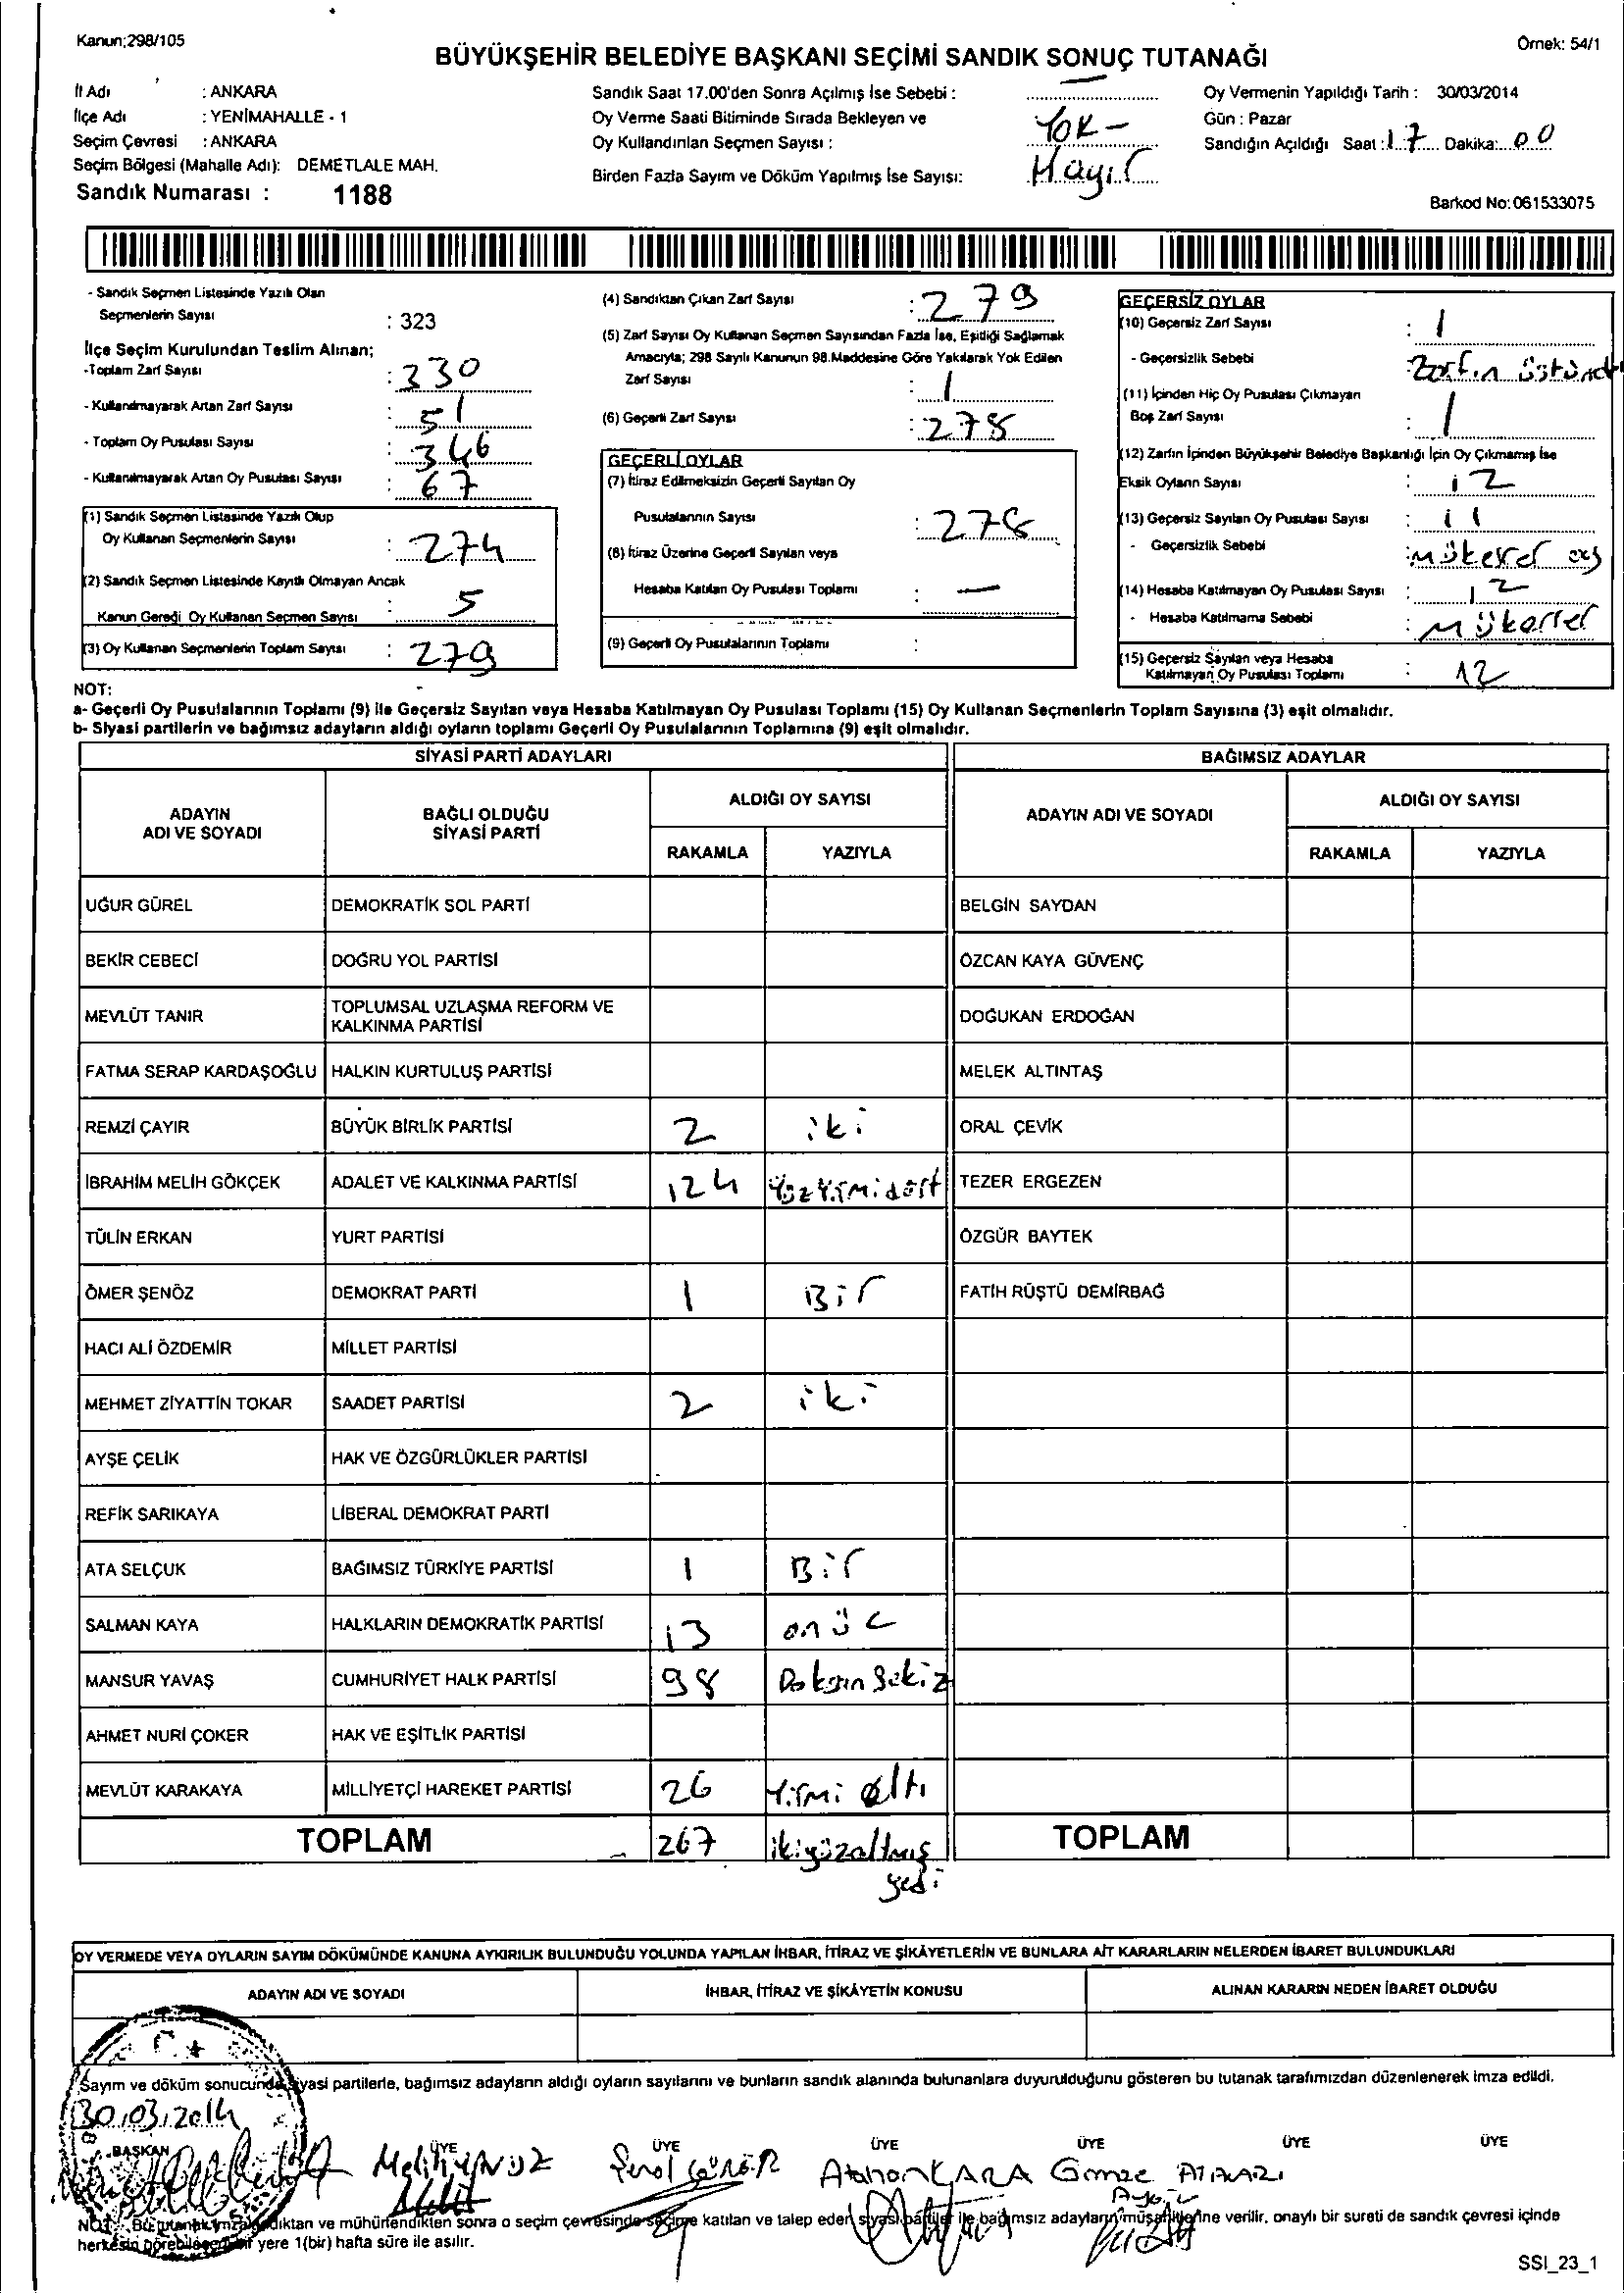 Kanun:298/105
Örnek: 54/1
BÜYÜKŞEHİR BELEDİYE BAŞKANI SEÇİMİ SANDIK SONUÇ TUTANAĞI
İl Adı : ANKARA
İlçe Adı : YENİMAHALLE - 1
Seçim Çevresi : ANKARA
Seçim Bölgesi (Mahalle Adı): DEMETLALE MAH.
Sandık Numarası : 1188
Sandık Saat 17.00'den Sonra Açılmış İse Sebebi : —
Oy Verme Saati Bitiminde Sırada Bekleyen ve
Oy Kullandırılan Seçmen Sayısı : Yok-
Birden Fazla Sayım ve Döküm Yapılmış İse Sayısı: Hayır
Oy Vermenin Yapıldığı Tarih : 30/03/2014
Gün : Pazar
Sandığın Açıldığı Saat : 17 Dakika: 00
Barkod No: 061533075
- Sandık Seçmen Listesinde Yazılı Olan
Seçmenlerin Sayısı : 323
İlçe Seçim Kurulundan Teslim Alınan;
-Toplam Zarf Sayısı : 330
- Kullanılmayarak Artan Zarf Sayısı : 51
- Toplam Oy Pusulası Sayısı : 346
- Kullanılmayarak Artan Oy Pusulası Sayısı : 67
(1) Sandık Seçmen Listesinde Yazılı Olup
Oy Kullanan Seçmenlerin Sayısı : 274
(2) Sandık Seçmen Listesinde Kayıtlı Olmayan Ancak
Kanun Gereği Oy Kullanan Seçmen Sayısı : 5
(3) Oy Kullanan Seçmenlerin Toplam Sayısı : 279
(4) Sandıktan Çıkan Zarf Sayısı : 279
(5) Zarf Sayısı Oy Kullanan Seçmen Sayısından Fazla İse, Eşitliği Sağlamak
Amacıyla; 298 Sayılı Kanunun 98.Maddesine Göre Yakılarak Yok Edilen
Zarf Sayısı : 1
(6) Geçerli Zarf Sayısı : 278
GEÇERLİ OYLAR
(7) İtiraz Edilmeksizin Geçerli Sayılan Oy
Pusulalarının Sayısı : 278
(8) İtiraz Üzerine Geçerli Sayılan veya
Hesaba Katılan Oy Pusulası Toplamı : —
(9) Geçerli Oy Pusulalarının Toplamı :
GEÇERSİZ OYLAR
(10) Geçersiz Zarf Sayısı : 1
- Geçersizlik Sebebi : Zarfın üstünde
(11) İçinden Hiç Oy Pusulası Çıkmayan
Boş Zarf Sayısı : 1
(12) Zarfın İçinden Büyükşehir Belediye Başkanlığı İçin Oy Çıkmamış İse
Eksik Oyların Sayısı : 12
(13) Geçersiz Sayılan Oy Pusulası Sayısı : 11
- Geçersizlik Sebebi : mükerrer oy
(14) Hesaba Katılmayan Oy Pusulası Sayısı : 12
- Hesaba Katılmama Sebebi : Mükerrer
(15) Geçersiz Sayılan veya Hesaba
Katılmayan Oy Pusulası Toplamı : 12
NOT:
a- Geçerli Oy Pusulalarının Toplamı (9) ile Geçersiz Sayılan veya Hesaba Katılmayan Oy Pusulası Toplamı (15) Oy Kullanan Seçmenlerin Toplam Sayısına (3) eşit olmalıdır.
b- Siyasi partilerin ve bağımsız adayların aldığı oyların toplamı Geçerli Oy Pusulalarının Toplamına (9) eşit olmalıdır.
SİYASİ PARTİ ADAYLARI
BAĞIMSIZ ADAYLAR
ADAYIN ADI VE SOYADI
BAĞLI OLDUĞU SİYASİ PARTİ
ALDIĞI OY SAYISI
RAKAMLA YAZIYLA
ADAYIN ADI VE SOYADI
ALDIĞI OY SAYISI
RAKAMLA YAZIYLA
UĞUR GÜREL DEMOKRATİK SOL PARTİ BELGİN SAYDAN
BEKİR CEBECİ DOĞRU YOL PARTİSİ ÖZCAN KAYA GÜVENÇ
MEVLÜT TANIR TOPLUMSAL UZLAŞMA REFORM VE KALKINMA PARTİSİ DOĞUKAN ERDOĞAN
FATMA SERAP KARDAŞOĞLU HALKIN KURTULUŞ PARTİSİ MELEK ALTINTAŞ
REMZİ ÇAYIR BÜYÜK BİRLİK PARTİSİ 2 iki ORAL ÇEVİK
İBRAHİM MELİH GÖKÇEK ADALET VE KALKINMA PARTİSİ 124 Yüzyirmidört TEZER ERGEZEN
TÜLİN ERKAN YURT PARTİSİ ÖZGÜR BAYTEK
ÖMER ŞENÖZ DEMOKRAT PARTİ 1 Bir FATİH RÜŞTÜ DEMİRBAĞ
HACI ALİ ÖZDEMİR MİLLET PARTİSİ
MEHMET ZİYATTİN TOKAR SAADET PARTİSİ 2 iki
AYŞE ÇELİK HAK VE ÖZGÜRLÜKLER PARTİSİ
REFİK SARIKAYA LİBERAL DEMOKRAT PARTİ
ATA SELÇUK BAĞIMSIZ TÜRKİYE PARTİSİ 1 Bir
SALMAN KAYA HALKLARIN DEMOKRATİK PARTİSİ 13 onüc
MANSUR YAVAŞ CUMHURİYET HALK PARTİSİ 98 Doksan Sekiz
AHMET NURİ ÇOKER HAK VE EŞİTLİK PARTİSİ
MEVLÜT KARAKAYA MİLLİYETÇİ HAREKET PARTİSİ 26 Yirmi altı
TOPLAM 267 ikiyüzaltmış yedi TOPLAM
OY VERMEDE VEYA OYLARIN SAYIM DÖKÜMÜNDE KANUNA AYKIRILIK BULUNDUĞU YOLUNDA YAPILAN İHBAR, İTİRAZ VE ŞİKÂYETLERİN VE BUNLARA AİT KARARLARIN NELERDEN İBARET BULUNDUKLARI
ADAYIN ADI VE SOYADI İHBAR, İTİRAZ VE ŞİKÂYETİN KONUSU ALINAN KARARIN NEDEN İBARET OLDUĞU
Sayım ve döküm sonucunda siyasi partilerle, bağımsız adayların aldığı oyların sayılarını ve bunların sandık alanında bulunanlara duyurulduğunu gösteren bu tutanak tarafımızdan düzenlenerek imza edildi.
30.03.2014
BAŞKAN ÜYE ÜYE ÜYE ÜYE ÜYE ÜYE
Melih YAVUZ Şenol Atahan KARA Gamze
NOT: Bu tutanak imzalandıktan ve mühürlendikten sonra o seçim çevresinde seçime katılan ve talep eden siyasi partiler ile bağımsız adayların müşahitlerine verilir, onaylı bir sureti de sandık çevresi içinde
herkesin görebileceği bir yere 1(bir) hafta süre ile asılır.
SSI_23_1